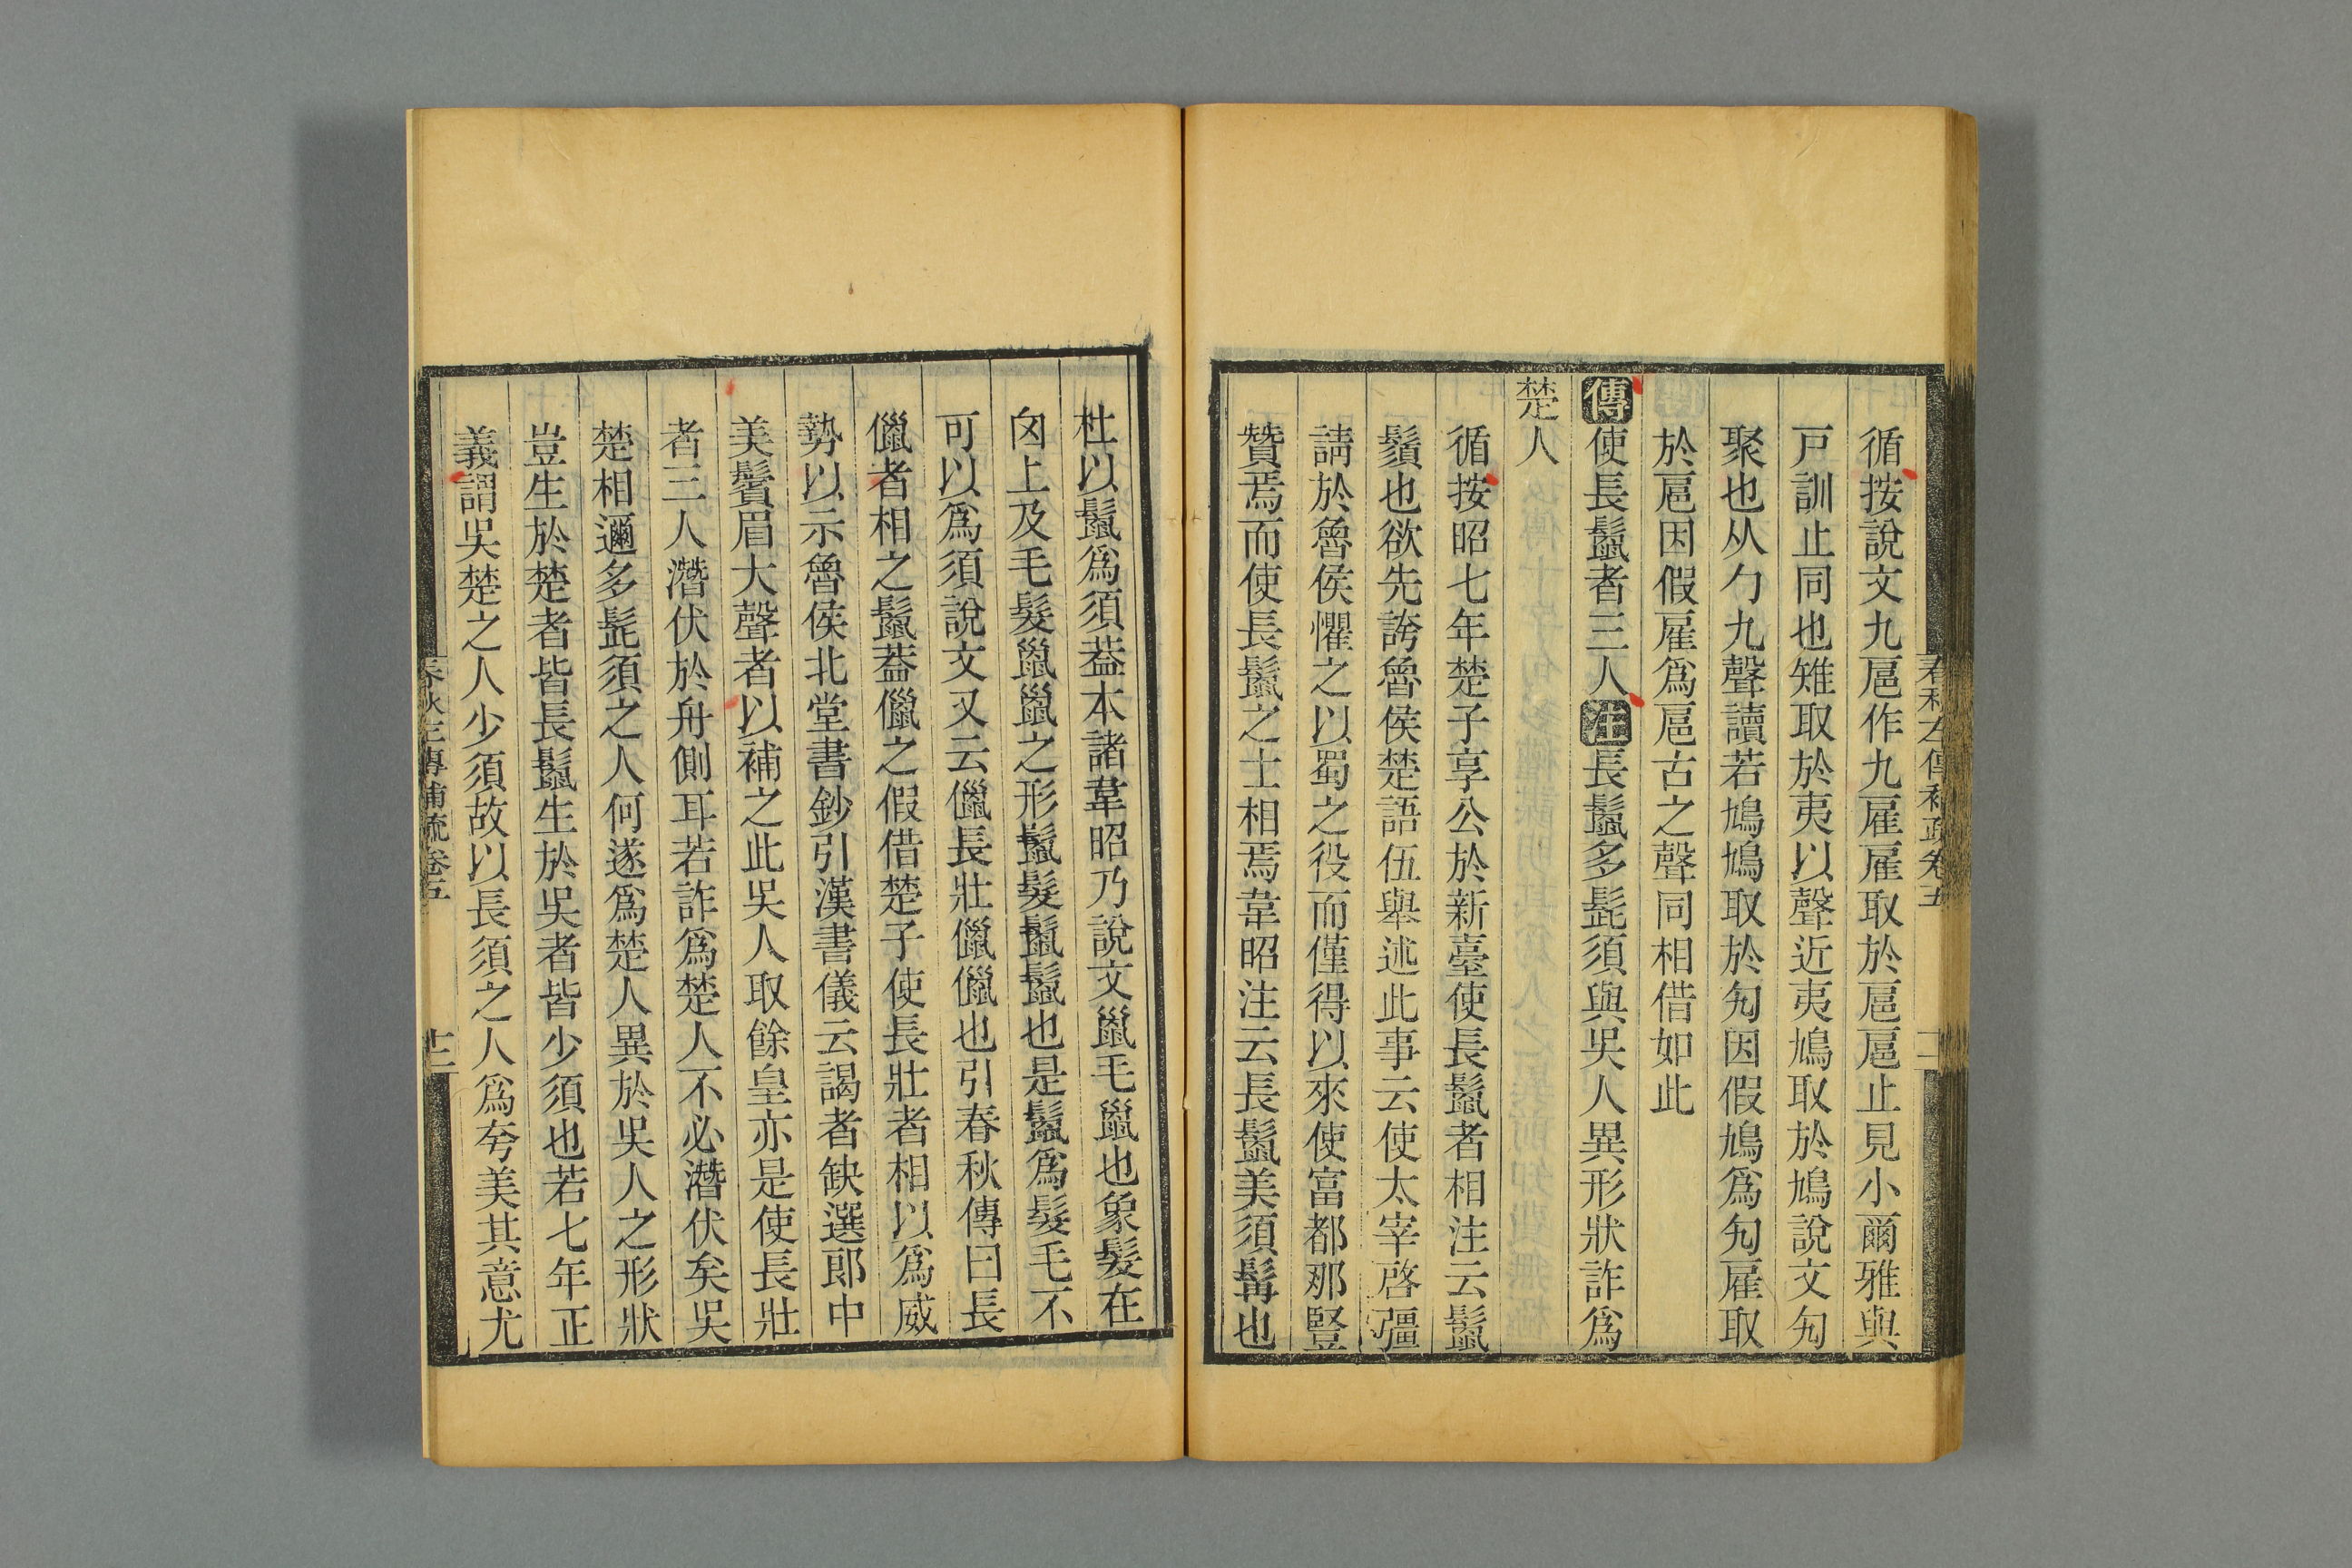 春秋左傳補疏卷五
循按說文九扈作九雇雇取於扈扈止見小爾雅與
戸訓止同也雉取於夷以聲近夷鳩取於鳩說文勼
聚也从勹九聲讀若鳩鳩取於勼因假鳩爲勼雇取
於扈因假雇爲扈古之聲同相借如此
傳使長鬣者三人注長鬣多髭須與吳人異形狀詐爲
楚人
循按昭七年楚子享公於新臺使長鬣者相注云鬣
鬚也欲先誇魯侯楚語伍舉述此事云使太宰啓彊
請於魯侯懼之以蜀之役而僅得以來使富都那豎
贊焉而使長鬣之士相焉韋昭注云長鬣美須髯也
杜以鬣爲須葢本諸韋昭乃說文巤毛巤也象髮在
囟上及毛髮巤巤之形鬣髮鬣鬣也是鬣爲髮毛不
可以爲須說文又云儠長壯儠儠也引春秋傳曰長
儠者相之鬣葢儠之假借楚子使長壯者相以爲威
勢以示魯侯北堂書鈔引漢書儀云謁者缺選郎中
美鬢眉大聲者以補之此吳人取餘皇亦是使長壯
者三人潛伏於舟側耳若詐爲楚人不必潛伏矣吳
楚相邇多髭須之人何遂爲楚人異於吳人之形狀
豈生於楚者皆長鬣生於吳者皆少須也若七年正
義謂吳楚之人少須故以長須之人爲夸美其意尤
春秋左傳補疏卷五
十二